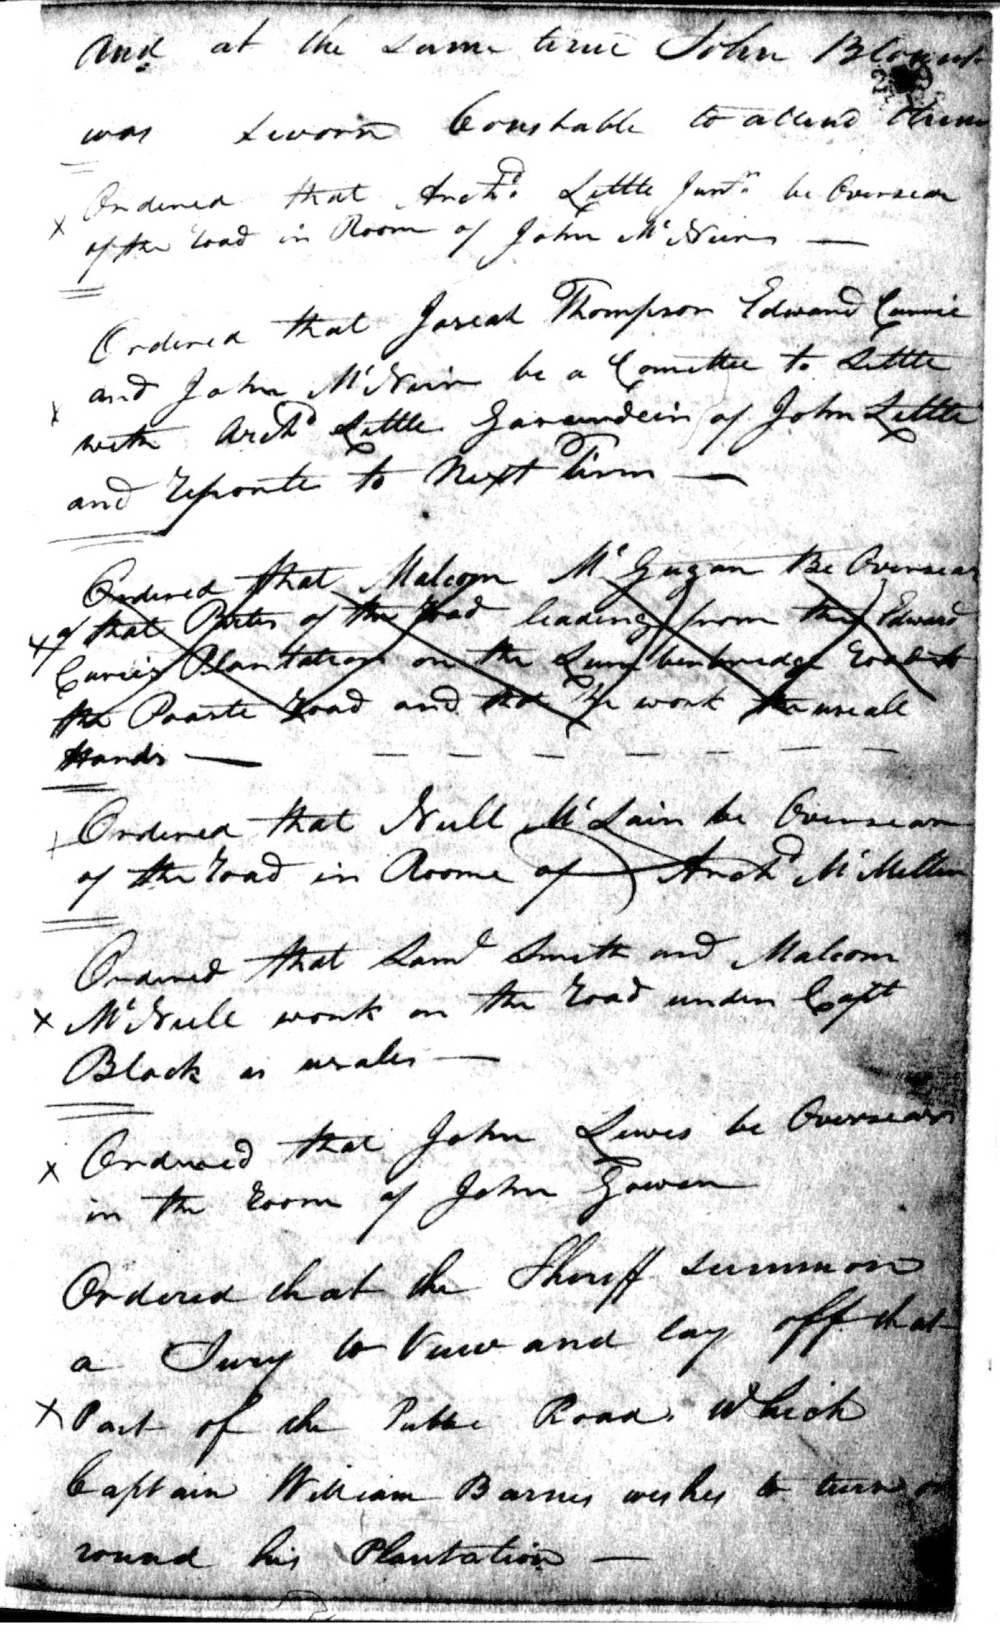 And at the same time John Blount
was sworn Constable to attend them
Ordered that Archd. Little Junr. be Oversear
of the road in Room of John McNern —
Ordered that Joseah Thompson Edward Currie
and John McNern be a Comittee to Settle
with Archd Little of John Little
and reporte to Next Tirm —
Ordered that Malcom McGugan Be Oversear
of that Partes of the road leading from the Edward
Curies Plantation on the Lumberbridge road to
the Poarte road and that he work the useall
Hands —
Ordered that Neill McLain be Oversear
of the road in Roome of Archd McMillin
Ordered that Saml Smith and Malcom
McNeill work on the road under Capt
Black as usales —
Ordered that John Lewes be Oversear
in the room of John Gowen
Ordered that the Sheriff summon
a Jury to View and lay off that
Part of the Public Road which
Captain William Barnes wishes to turn
round his Plantation —